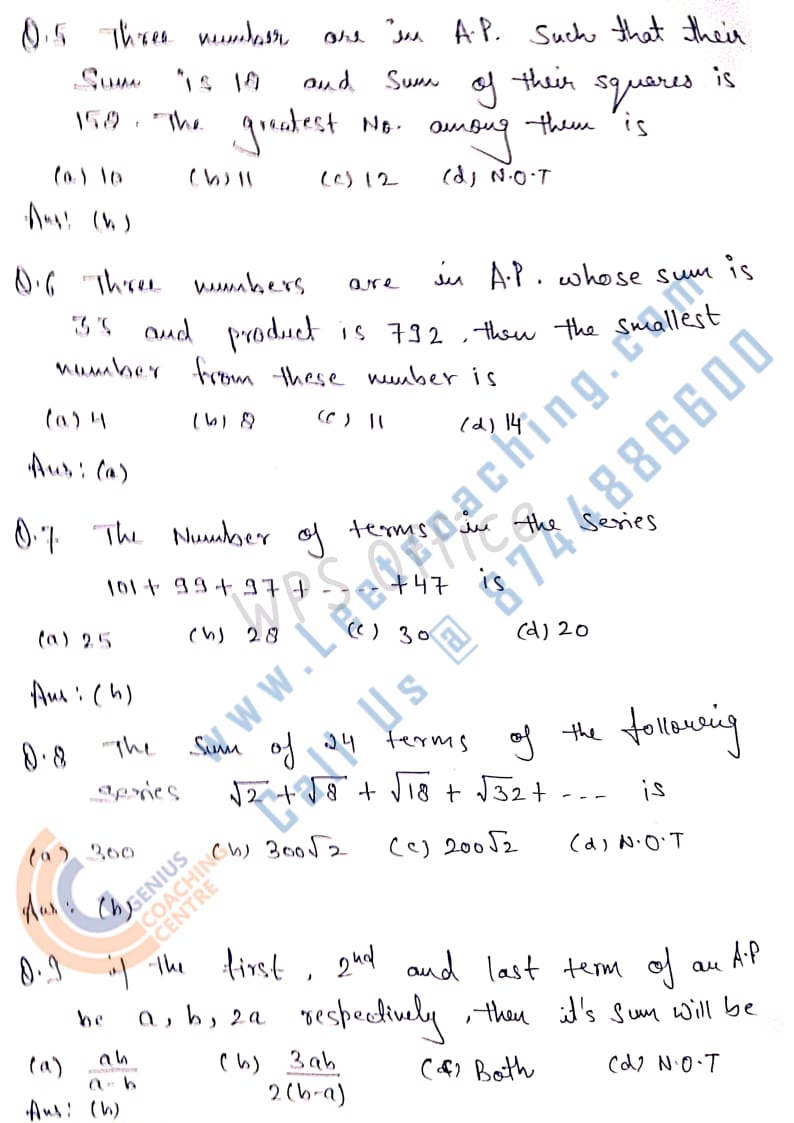 Q.5 Three number are in A.P. Such that their
Sum is 18 and Sum of their squares is
158. The greatest No. among them is
(a) 10 (b) 11 (c) 12 (d) N.O.T
Ans: (b)
Q.6 Three numbers are in A.P. whose sum is
33 and product is 792, then the smallest
number from these number is
(a) 4 (b) 8 (c) 11 (d) 14
Ans: (a)
Q.7. The Number of terms in the series
101 + 99 + 97 + ----- + 47 is
(a) 25 (b) 28 (c) 30 (d) 20
Ans: (b)
Q.8 The Sum of 24 terms of the following
series √2 + √8 + √18 + √32 + --- is
(a) 300 (b) 300√2 (c) 200√2 (d) N.O.T
Ans: (b)
Q.9 if the first, 2nd and last term of an A.P
be a, b, 2a respectively, then it's sum will be
(a) ab/a-b (b) 3ab/2(b-a) (c) Both (d) N.O.T
Ans: (b)
www.Leetcoaching.com
Call Us @ 8744886600
WPS Office
GENIUS
COACHING
CENTRE